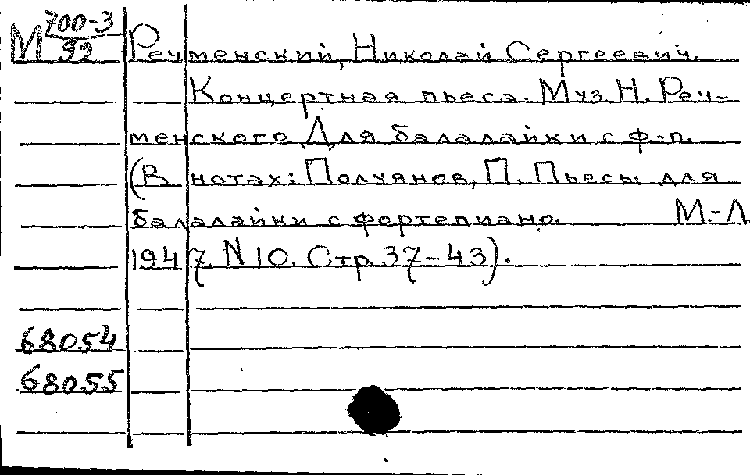 М 700-3/32 Речменский, Николай Сергеевич.
Концертная пьеса. Муз. Н. Реч-
менского. Для балалайки с ф-п.
(В нотах: Полуянов, П. Пьесы для
балалайки с фортепиано. М.-Л
1947. N 10. Стр. 37-43).
68054
68055